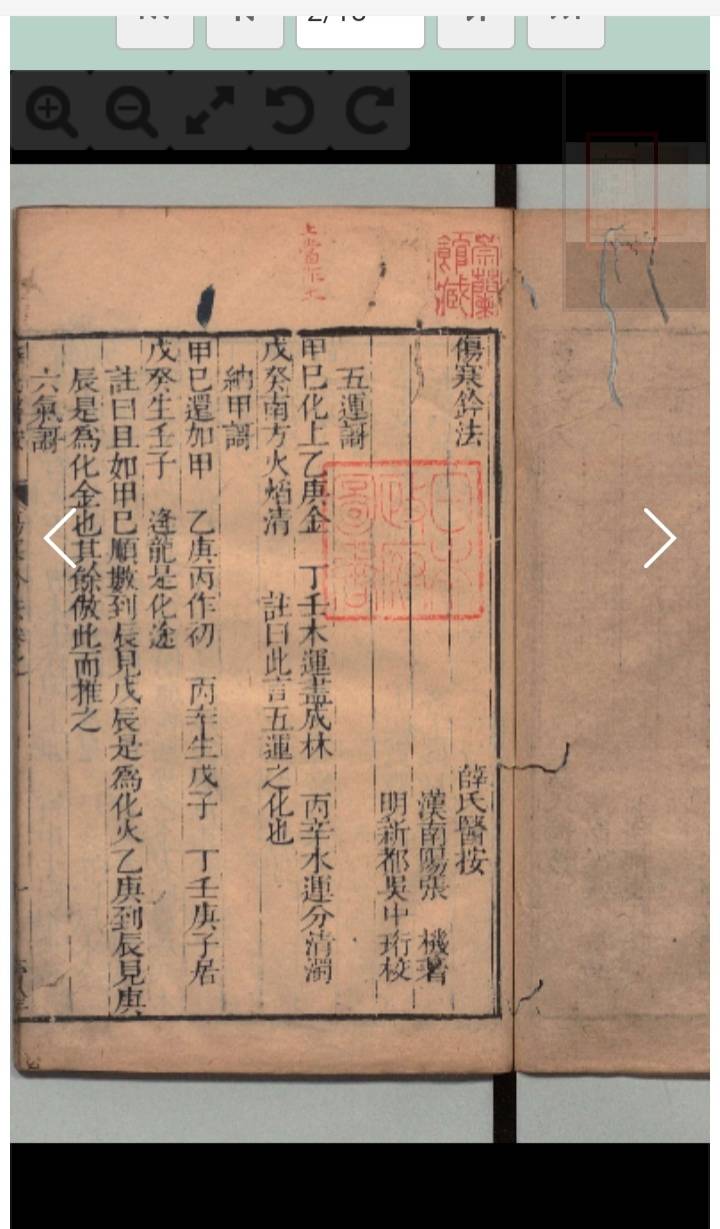 傷寒鈐法 薛氏醫按
漢南陽張 機著
明新都吳中珩校
五運謌
甲巳化土乙庚金 丁壬木運盡成林 丙辛水運分清濁
戊癸南方火熖清 註曰此言五運之化也
納甲謌
甲巳還加甲 乙庚丙作初 丙辛生戊子 丁壬庚子居
戊癸生壬子 逢龍是化途
註曰且如甲巳順數到辰見戊辰是爲化火乙庚到辰見庚
辰是爲化金也其餘倣此而推之
六氣謌